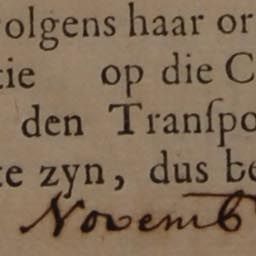 olgens haar or
tie op die C
den Tranſpo
te zyn, dus be
Novemb